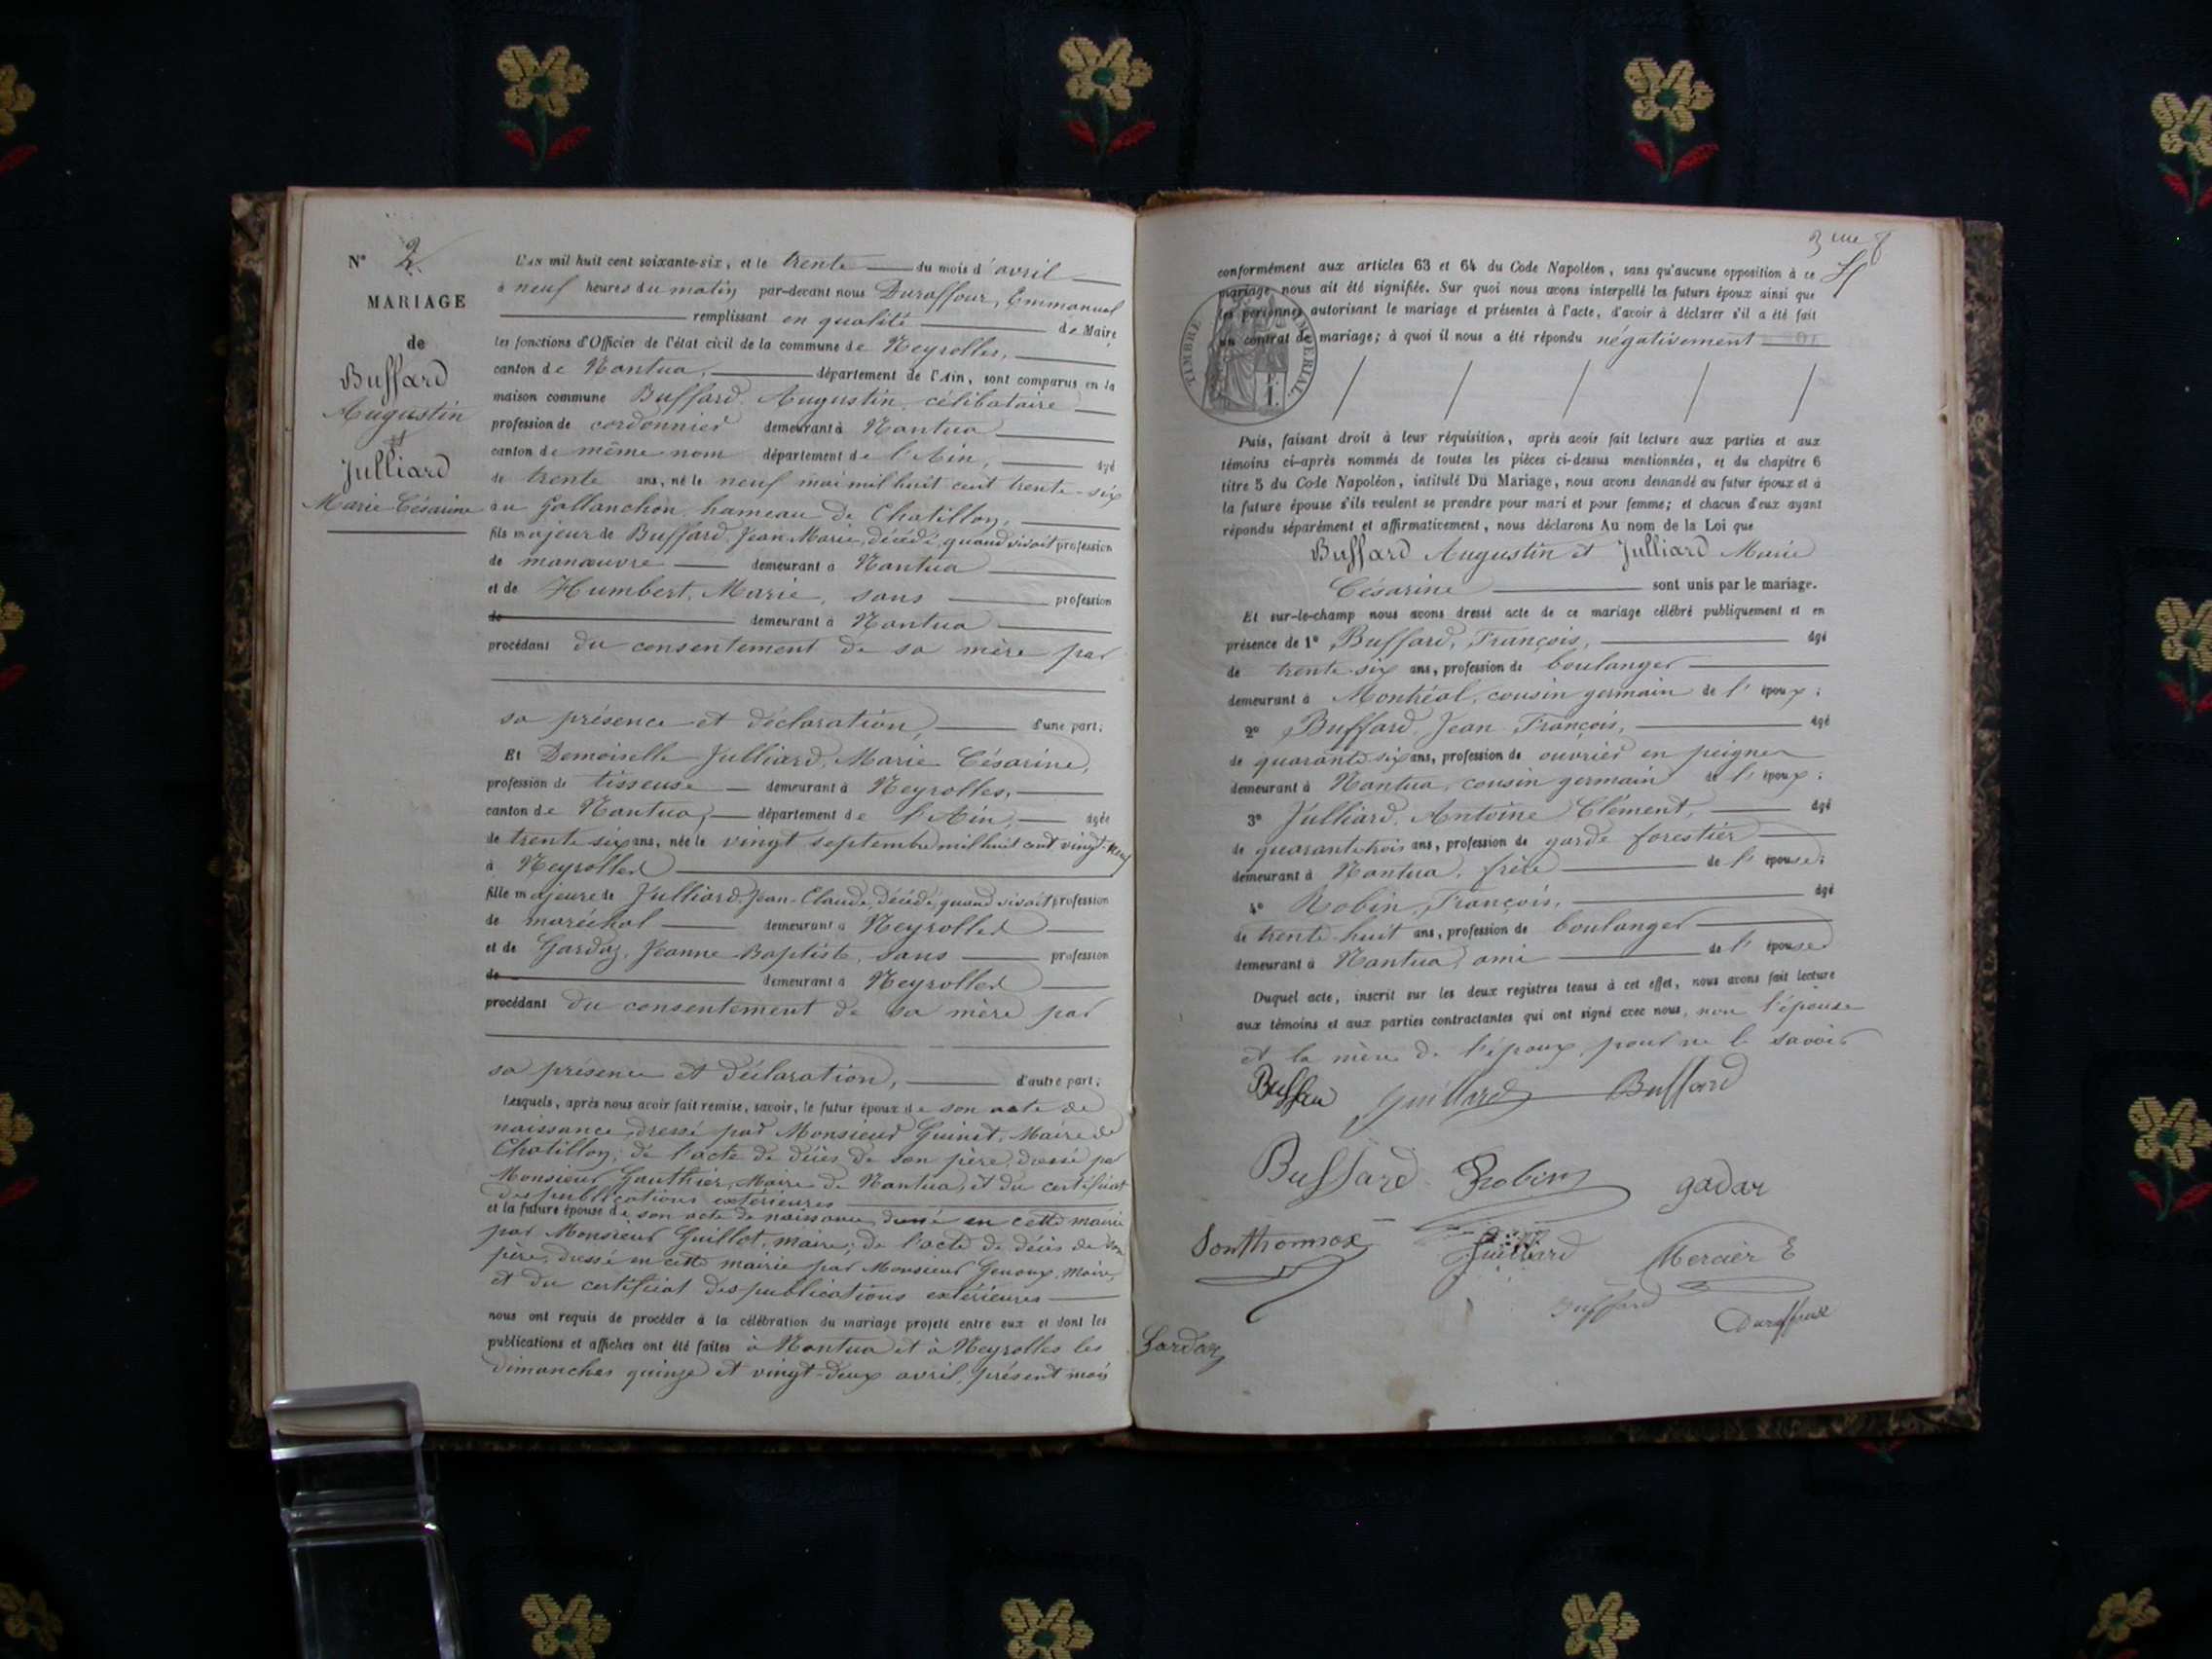 N° 2
MARIAGE
de
Buffard
Augustin
et
Julliard
Marie Césarine
L'AN mil huit cent soixante-six, et le trente du mois d'avril
à neuf heures du matin par-devant nous Duraffour, Emmanuel
remplissant en qualité de Maire
les fonctions d'Officier de l'état civil de la commune de Neyrolles,
canton de Nantua, département de l'Ain, sont comparus en la
maison commune Buffard, Augustin, célibataire
profession de cordonnier demeurant à Nantua
canton de même nom département de l'Ain, âgé
de trente ans, né le neuf mai mil huit cent trente-six
au Gallanchon, hameau de Chatillon,
fils majeur de Buffard, Jean Marie, décédé, quand vivait profession
de manœuvre demeurant à Nantua
et de Humbert, Marie, sans profession
de demeurant à Nantua
procédant du consentement de sa mère par
sa présence et déclaration, d'une part;
Et Demoiselle Julliard, Marie Césarine,
profession de tisseuse demeurant à Neyrolles,
canton de Nantua, département de l'Ain, âgée
de trente six ans, née le vingt septembre mil huit cent vingt-neuf
à Neyrolles
fille majeure de Julliard, Jean-Claude, décédé, quand vivait profession
de maréchal demeurant à Neyrolles
et de Gardaz, Jeanne Baptiste, sans profession
de demeurant à Neyrolles
procédant du consentement de sa mère par
sa présence et déclaration, d'autre part;
Lesquels, après nous avoir fait remise, savoir, le futur époux de son acte de
naissance, dressé par Monsieur Guinet, Maire de
Chatillon; de l'acte de décès de son père, dressé par
Monsieur Gauthier, Maire de Nantua, et du certificat
des publications extérieures
et la future épouse de son acte de naissance, dressé en cette mairie
par Monsieur Guillot, maire; de l'acte de décès de son
père, dressé en cette mairie par Monsieur Genoux, Maire,
et du certificat des publications extérieures
nous ont requis de procéder à la célébration du mariage projeté entre eux et dont les
publications et affiches ont été faites à Nantua et à Neyrolles les
dimanches quinze et vingt-deux avril, présent mois
conformément aux articles 63 et 64 du Code Napoléon, sans qu'aucune opposition à ce
mariage nous ait été signifiée. Sur quoi nous avons interpellé les futurs époux ainsi que
les personnes autorisant le mariage et présentes à l'acte, d'avoir à déclarer s'il a été fait
un contrat de mariage; à quoi il nous a été répondu négativement
TIMBRE IMPÉRIAL
Puis, faisant droit à leur réquisition, après avoir fait lecture aux parties et aux
témoins ci-après nommés de toutes les pièces ci-dessus mentionnées, et du chapitre 6
titre 5 du Code Napoléon, intitulé Du Mariage, nous avons demandé au futur époux et à
la future épouse s'ils veulent se prendre pour mari et pour femme; et chacun d'eux ayant
répondu séparément et affirmativement, nous déclarons Au nom de la Loi que
Buffard Augustin et Julliard Marie
Césarine sont unis par le mariage.
Et sur-le-champ nous avons dressé acte de ce mariage célébré publiquement et en
présence de 1° Buffard, François, âgé
de trente-six ans, profession de boulanger
demeurant à Montréal, cousin germain de l'époux;
2° Buffard, Jean François, âgé
de quarante six ans, profession de ouvrier en peignes
demeurant à Nantua, cousin germain de l'époux;
3° Julliard, Antoine Clément, âgé
de quarante trois ans, profession de garde forestier
demeurant à Nantua, frère de l'épouse;
4° Robin, François, âgé
de trente-huit ans, profession de boulanger
demeurant à Nantua, ami de l'épouse
Duquel acte, inscrit sur les deux registres tenus à cet effet, nous avons fait lecture
aux témoins et aux parties contractantes qui ont signé avec nous, non l'épouse
et la mère de l'époux pour ne le savoir
Guillard Buffard
Buffard Robin gadar
Sonthonnax Juilliard Mercier E
Buffard Duraffour
Gardaz